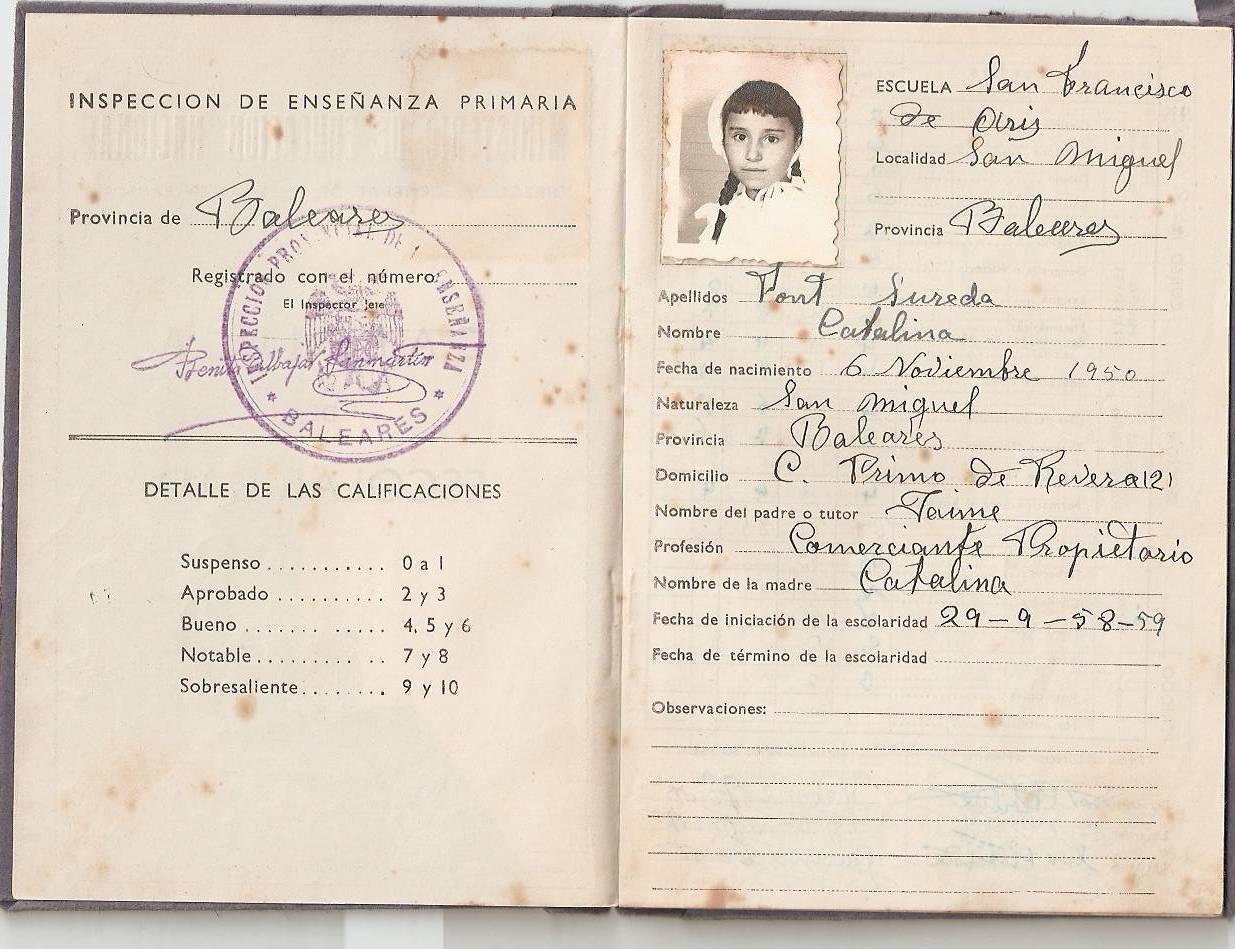 INSPECCION DE ENSEÑANZA PRIMARIA
Provincia de Baleares
Registrado con el número
El Inspector Jefe
Benito Albajar Sanmartín
INSPECCION PROVINCIAL DE ENSEÑANZA
* BALEARES *
DETALLE DE LAS CALIFICACIONES
Suspenso ........... 0 a 1
Aprobado .......... 2 y 3
Bueno ............. 4, 5 y 6
Notable ......... .. 7 y 8
Sobresaliente ........ 9 y 10
ESCUELA San Francisco
de Asis
Localidad San Miguel
Provincia Baleares
Apellidos Font Sureda
Nombre Catalina
Fecha de nacimiento 6 Noviembre 1950
Naturaleza San Miguel
Provincia Baleares
Domicilio C. Primo de Revera 121
Nombre del padre o tutor Jaime
Profesión Comerciante Propietario
Nombre de la madre Catalina
Fecha de iniciación de la escolaridad 29-9-58-59
Fecha de término de la escolaridad
Observaciones: